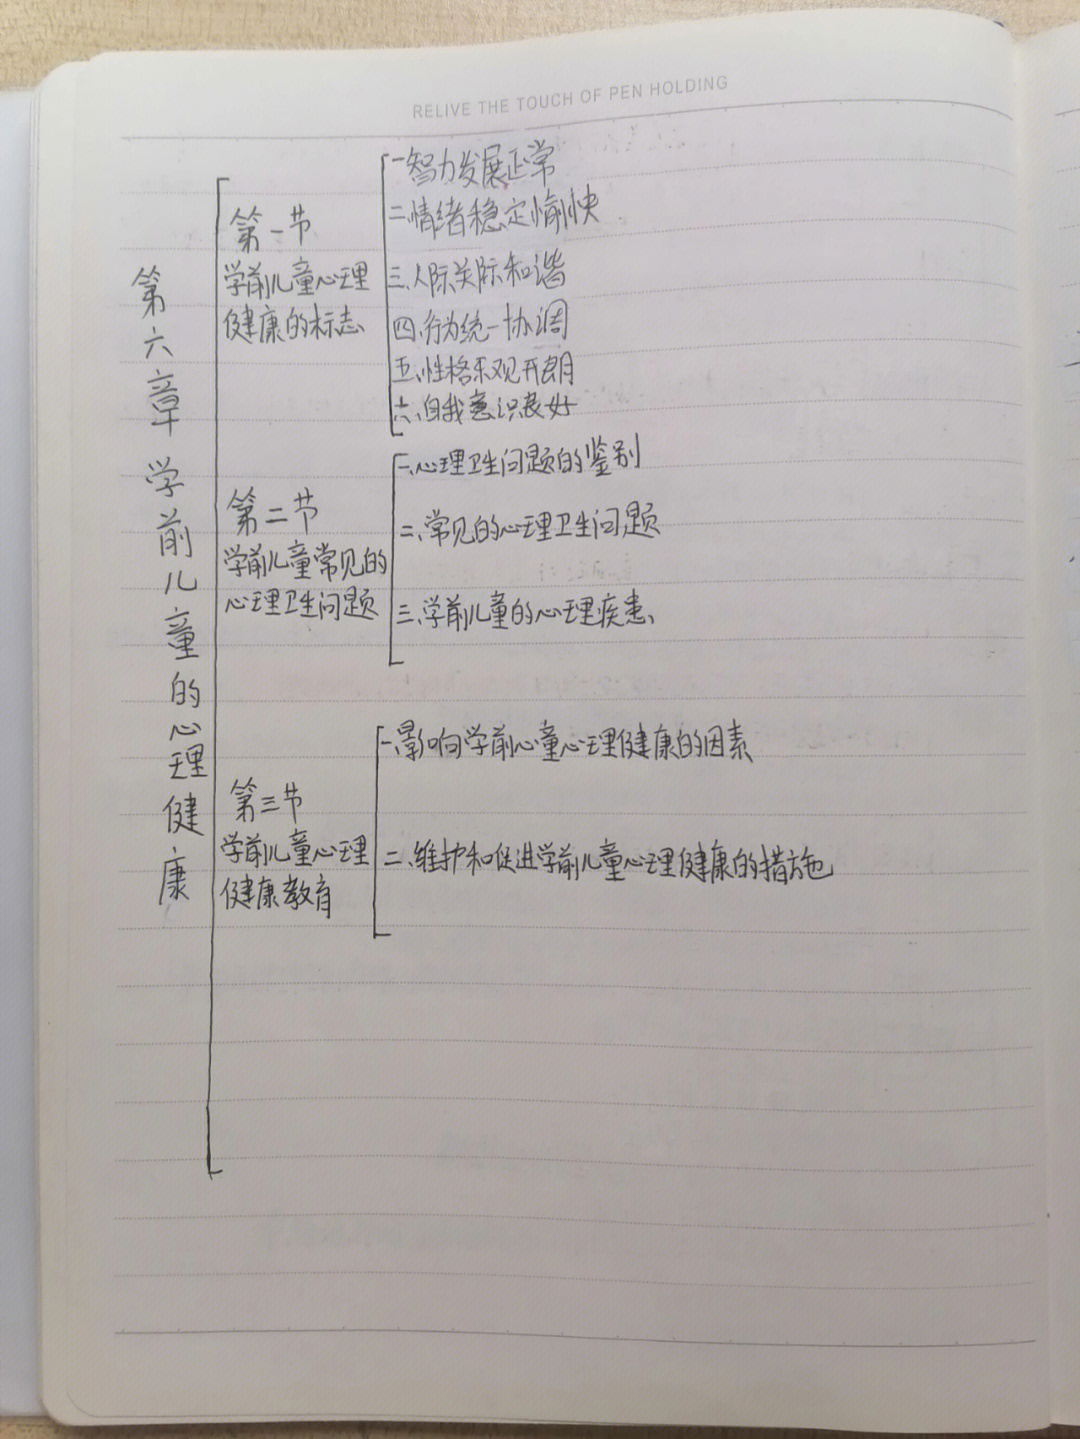 RELIVE THE TOUCH OF PEN HOLDING
第六章 学前儿童的心理健康
第一节
学前儿童心理
健康的标志
一智力发展正常
二.情绪稳定愉快
三.人际关际和谐
四.行为统一协调
五.性格乐观开朗
六.自我意识良好
第二节
学前儿童常见的
心理卫生问题
一、心理卫生问题的鉴别
二、常见的心理卫生问题
三、学前儿童的心理疾患、
第三节
学前儿童心理
健康教育
一、影响学前心童心理健康的因素
二、维护和促进学前儿童心理健康的措施